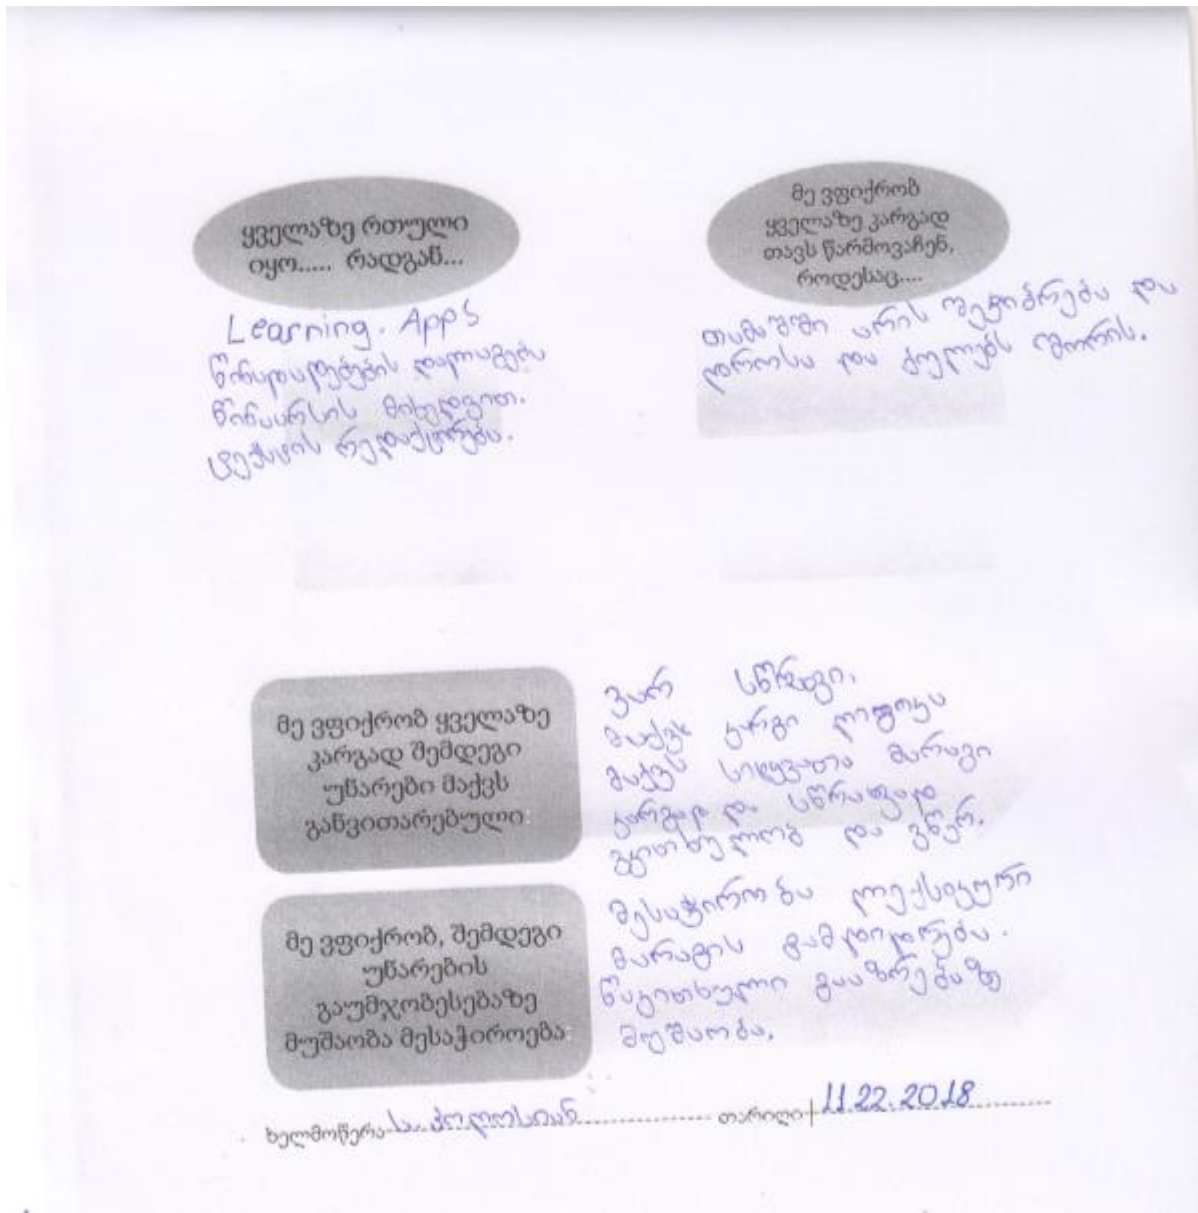 ყველაზე რთული
იყო..... რადგან...
Learning. Apps
წინადადებების დალაგება
შინაარსის მიხედვით.
ტექსტის რედაქტირება.
მე ვფიქრობ
ყველაზე კარგად
თავს წარმოვაჩენ,
როდესაც....
თამაშში არის შეჯიბრება და
დროსა და ქულებს შორის.
მე ვფიქრობ ყველაზე
კარგად შემდეგი
უნარები მაქვს
განვითარებული:
ვარ სწრაფი.
მაქვს კარგი
მაქვს სიტყვათა მარაგი
კარგად და სწრაფად
ვკითხულობ და ვწერ.
მე ვფიქრობ, შემდეგი
უნარების
გაუმჯობესებაზე
მუშაობა მესაჭიროება:
მესაჭიროება ლექსიკური
მარაგის გამდიდრება.
წაკითხული გააზრებაზე
მუშაობა.
ხელმოწერა ს. თარიღი 11.22.2018